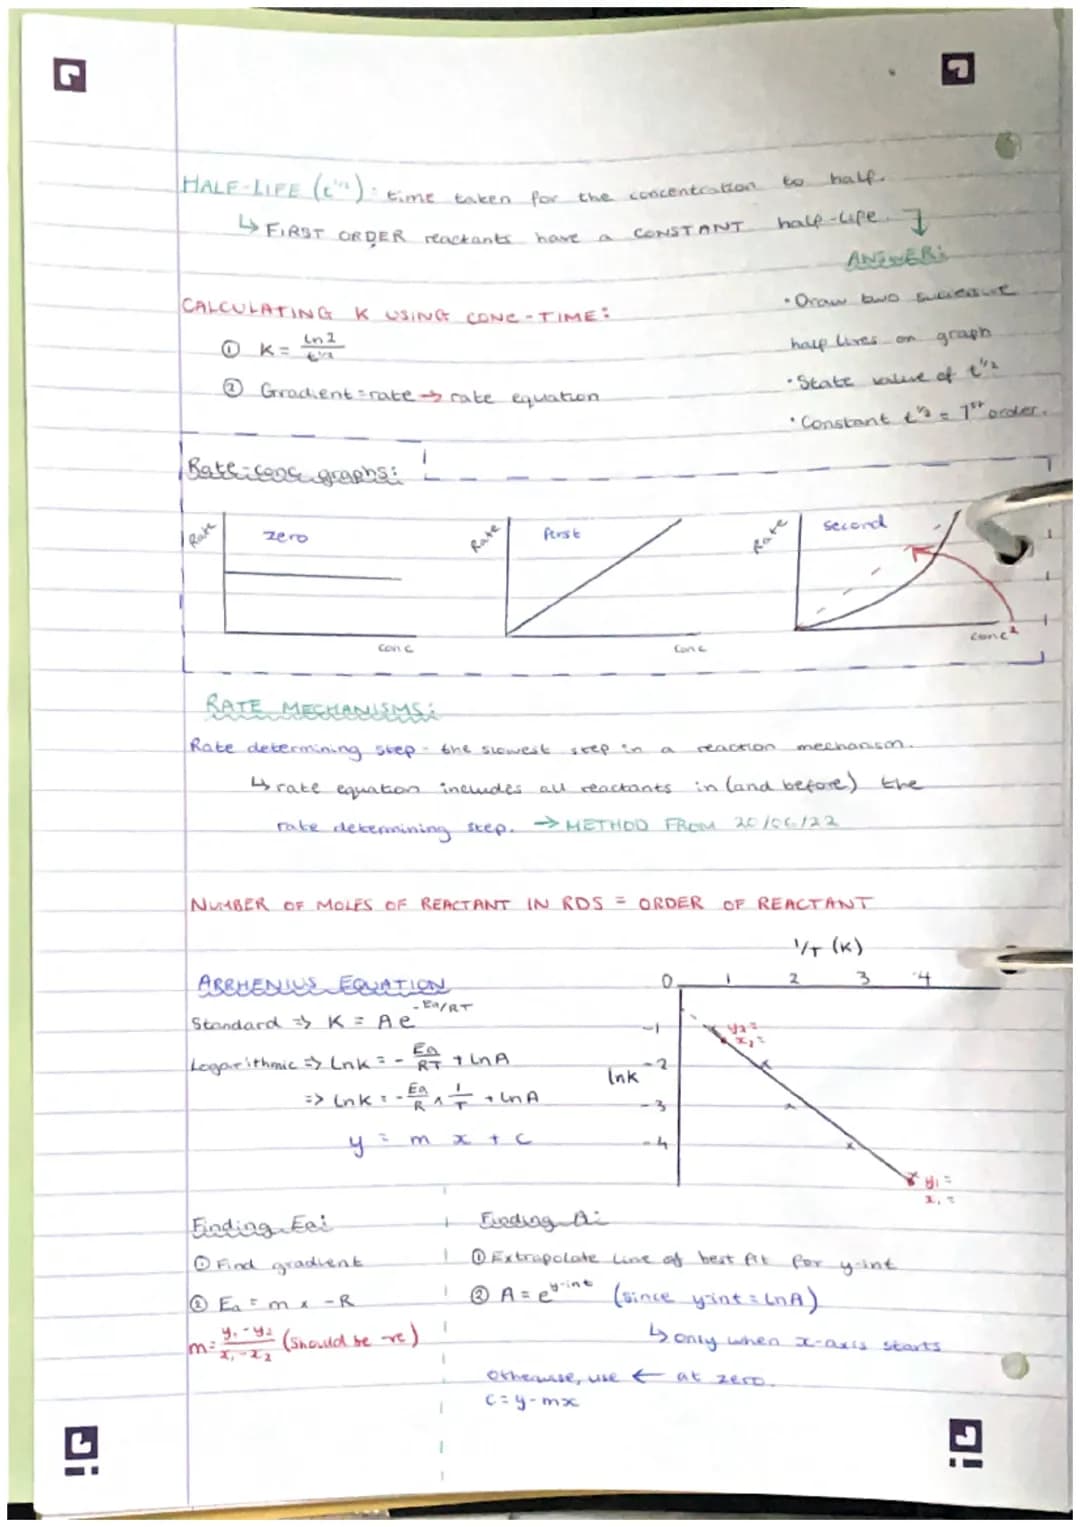 HALF-LIFE (t^1/2): time taken for the concentration to half.
↳ FIRST ORDER reactants have a CONSTANT half-life.
ANSWER:
• Draw two successive
half lives on graph
• State value of t^1/2
• Constant t^1/2 = 1st order.
CALCULATING K USING CONC-TIME:
① K = ln2/t^1/2
② Gradient = rate → rate equation
Rate-conc graphs:
Rate zero conc
Rate first conc
Rate second conc²
RATE MECHANISMS:
Rate determining step - the slowest step in a reaction mechanism.
↳ rate equation includes all reactants in (and before) the
rate determining step. → METHOD FROM 20/06/22
NUMBER OF MOLES OF REACTANT IN RDS = ORDER OF REACTANT
ARRHENIUS EQUATION
Standard => K = Ae^-Ea/RT
Logarithmic => lnk = - Ea/RT + lnA
=> lnk = - Ea/R × 1/T + lnA
y = m x + c
1/T (K)
0 1 2 3 4
-1
-2
lnk
-3
-4
y2 =
x2 =
y1 =
x1 =
Finding Ea:
① Find gradient
② Ea = m x -R
m = y1-y2/x1-x2 (should be -ve)
Finding A:
① Extrapolate line of best fit for y-int
② A = e^y-int (since y-int = lnA)
↳ only when x-axis starts
at zero.
otherwise, use ←
c = y-mx